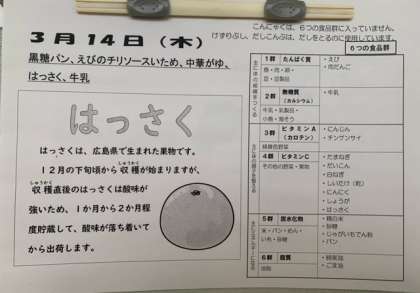 こんにゃくは、6つの食品群に入っていません。
けずりぶし、だしこんぶは、だしをとるのに使用しています。
3月14日（木）
黒糖パン、えびのチリソースいため、中華がゆ、
はっさく、牛乳
6つの食品群
はっさく
はっさくは、広島県で生まれた果物です。
12月の下旬頃から収穫が始まりますが、
しゅうかく
収穫直後のはっさくは酸味が
強いため、1か月から2か月程
度貯蔵して、酸味が落ち着いて
から出荷します。
1群 たんぱく質
魚・肉・卵・
豆・豆製品
・えび
・肉だんご
2群 無機質
（カルシウム）
牛乳・乳製品・
小魚・海そう
・牛乳
3群 ビタミンA
（カロテン）
緑黄色野菜
・にんじん
・チンゲンサイ
4群 ビタミンC
その他の野菜・果物
・たまねぎ
・だいこん
・白ねぎ
・しいたけ（乾）
・にんにく
・しょうが
・はっさく
5群 炭水化物
米・パン・めん・
いも・砂糖
・精白米
・砂糖
・じゃがいもでん粉
・パン
6群 脂質
油脂
・ごま油